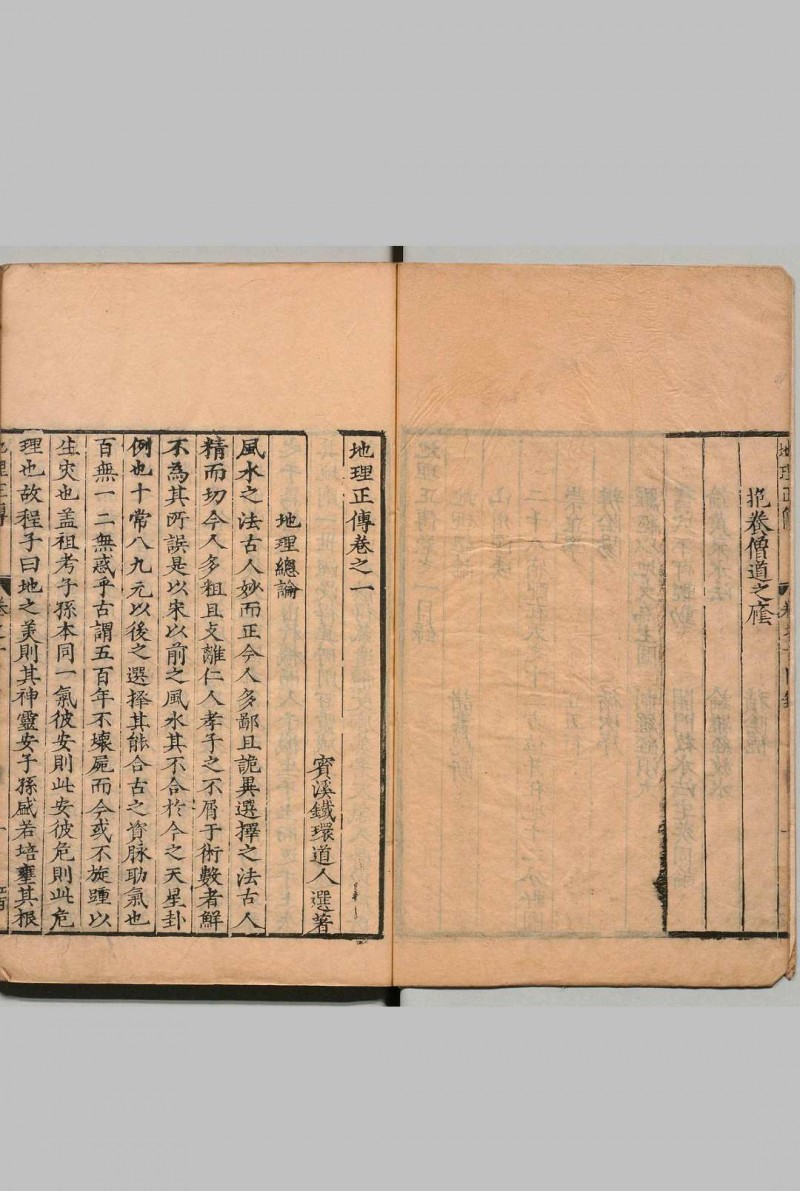 抱養僧道之䕃
地理正傳卷之一
賓溪鐵環道人選著
地理總論
風水之法古人妙而正今人多鄙且詭異選擇之法古人
精而切今人多粗且攴離仁人孝子之不屑于術數者鮮
不為其所誤是以宋以前之風水其不合於今之天星卦
例也十常八九元以後之選擇其能合古之資脉助氣也
百無一二無惑乎古謂五百年不壞屍而今或不旋踵以
生灾也盖祖考子孫本同一氣彼安則此安彼危則此危
理也故程子曰地之美則其神靈安子孫盛若培壅其根